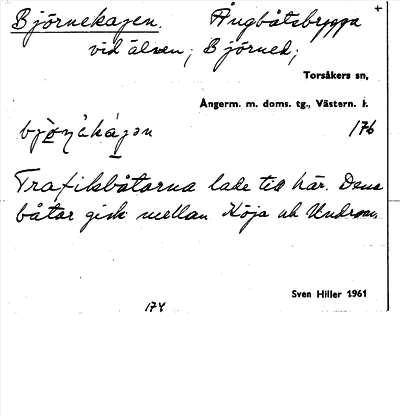 Björnekajen. Ångbåtsbrygga +
vid älven; Björned;
Torsåkers sn,
Ångerm. m. doms. tg., Västern. l.
176
Trafikbåtarna lade till här. Dessa
båtar gick mellan Höja och Undrom.
Sven Hiller 1961
174